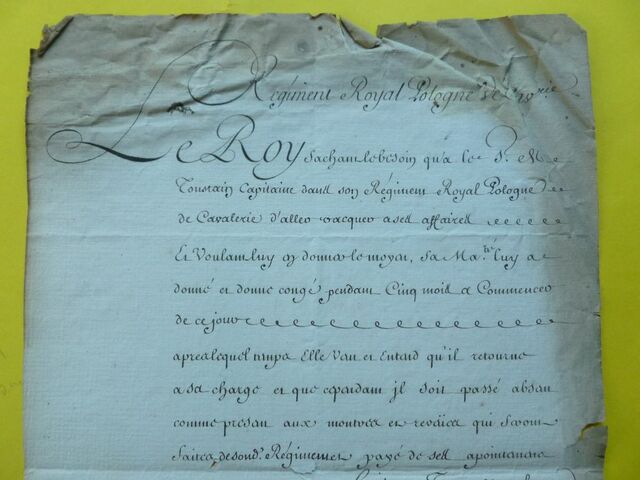 Régiment Royal Pologne de Cav.rie
Le Roy sachant le besoin qu'a le S.r M
Toustain Capitaine dans son Régiment Royal Pologne
de Cavalerie d'aller vacquer a ses affaires
Et Voulant luy en donner le moyen, sa Ma.té luy a
donné et donne congé pendant Cinq mois a Commencer
de ce jour
apres lequel temps Elle Veut et Entend qu'il retourne
a sa charge et que cependant il soit passé absent
comme presant aux montres et reveües qui seront
faites de son d. Régiment et payé de ses apointemens